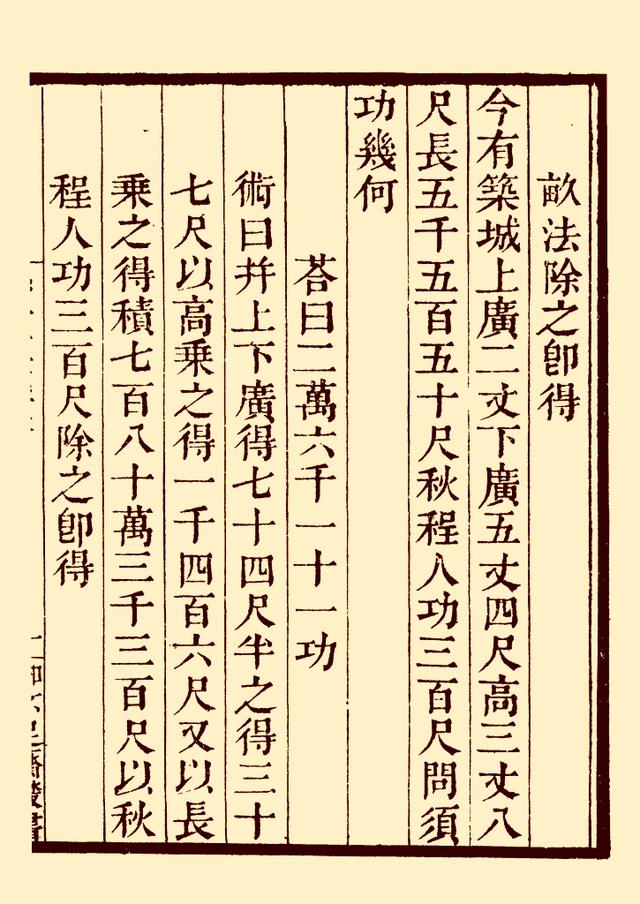 畝法除之卽得
今有築城上廣二丈下廣五丈四尺高三丈八
尺長五千五百五十尺秋程人功三百尺問須
功幾何
荅曰二萬六千一十一功
術曰幷上下廣得七十四尺半之得三十
七尺以高乘之得一千四百六尺又以長
乘之得積七百八十萬三千三百尺以秋
程人功三百尺除之卽得